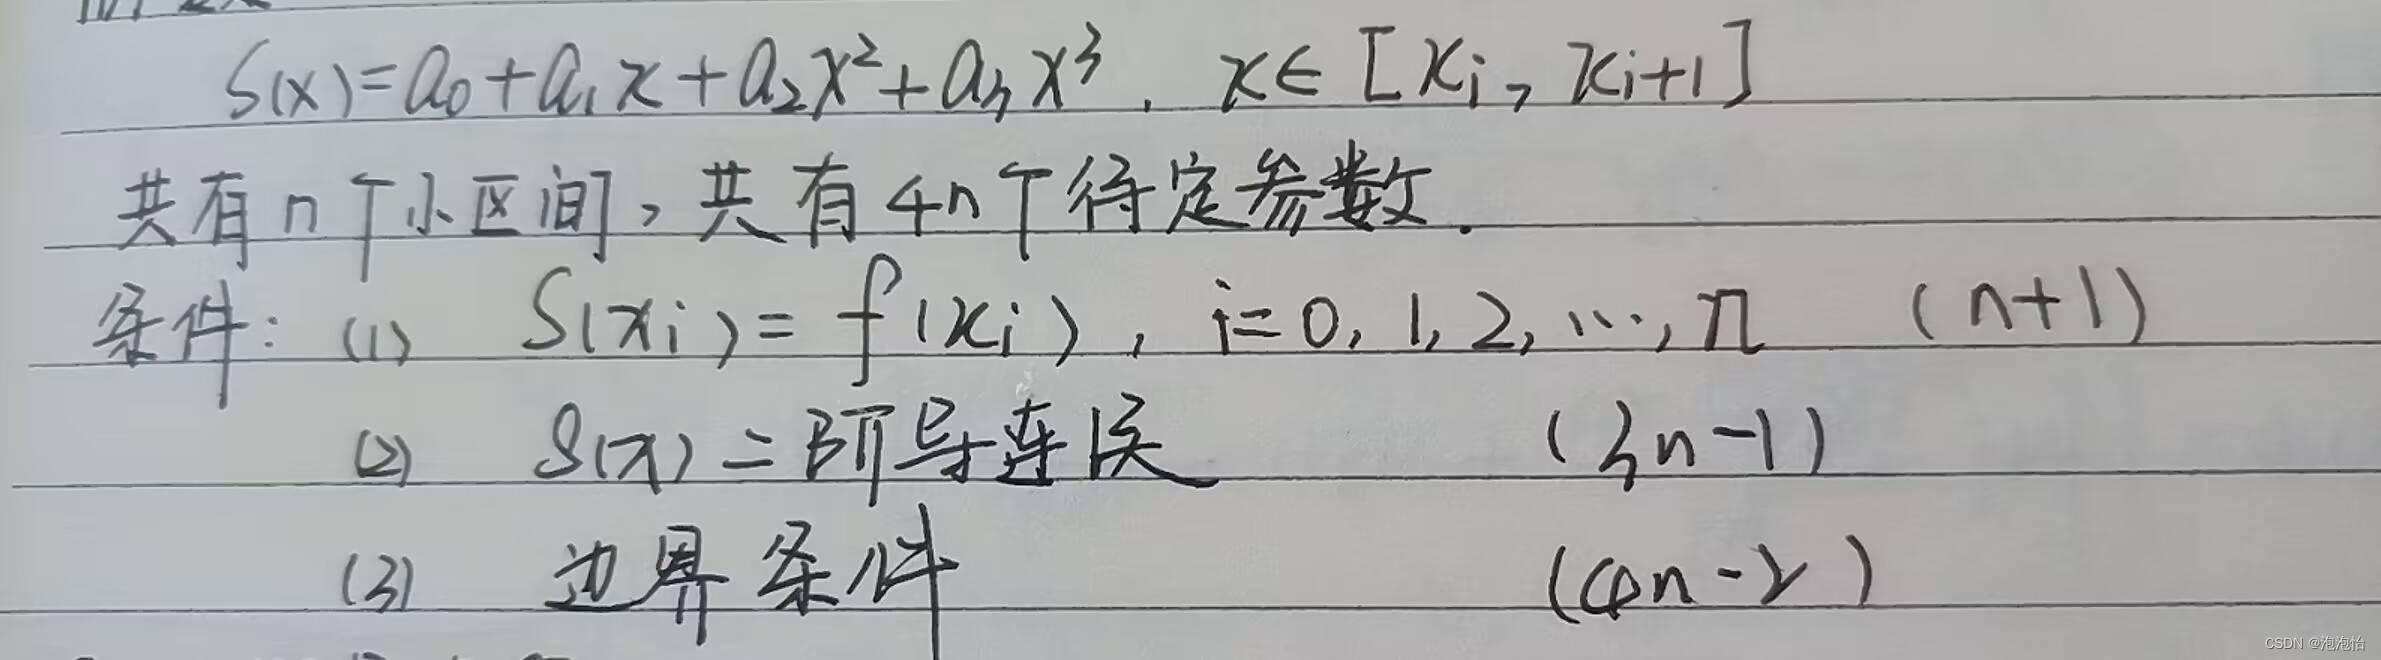 S(x)=a₀+a₁x+a₂x²+a₃x³, x∈[xᵢ, xᵢ₊₁]
共有n个小区间,共有4n个待定参数.
条件: (1) S(xᵢ)=f(xᵢ), i=0,1,2,…,n (n+1)
(2) S(x)二阶导连续 (3n-1)
(3) 边界条件 (4n-2)
CSDN @泡泡怡